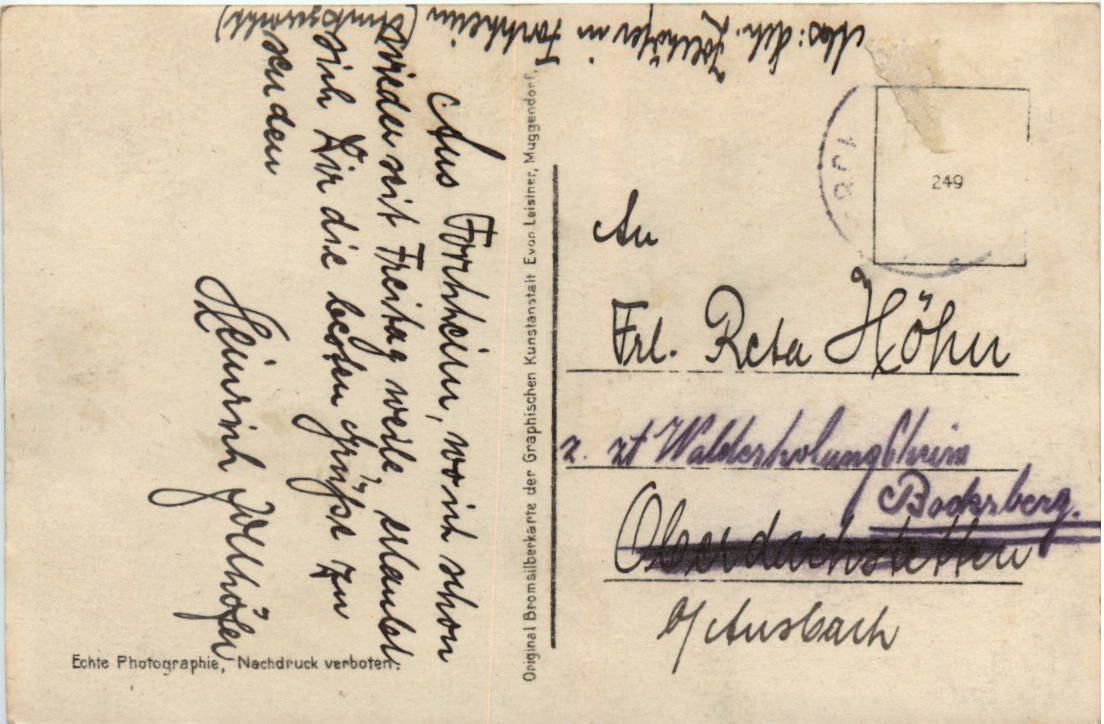 Abs: Sch. Zollhöfer in Forchheim (Amtsgericht)
Aus Forchheim, wo ich schon
wieder seit Freitag weile, erlaubt
sich Dir die besten Grüße zu
senden
Heinrich Zollhöfer
Echte Photographie, Nachdruck verboten.
Original Bromsilberkarte der Graphischen Kunstanstalt Evan Leistner, Muggendorf.
249
An
Frl. Reta Höhn
z. zt Walderholungsheim
Bocksberg.
Oberdachstetten
b/Ansbach